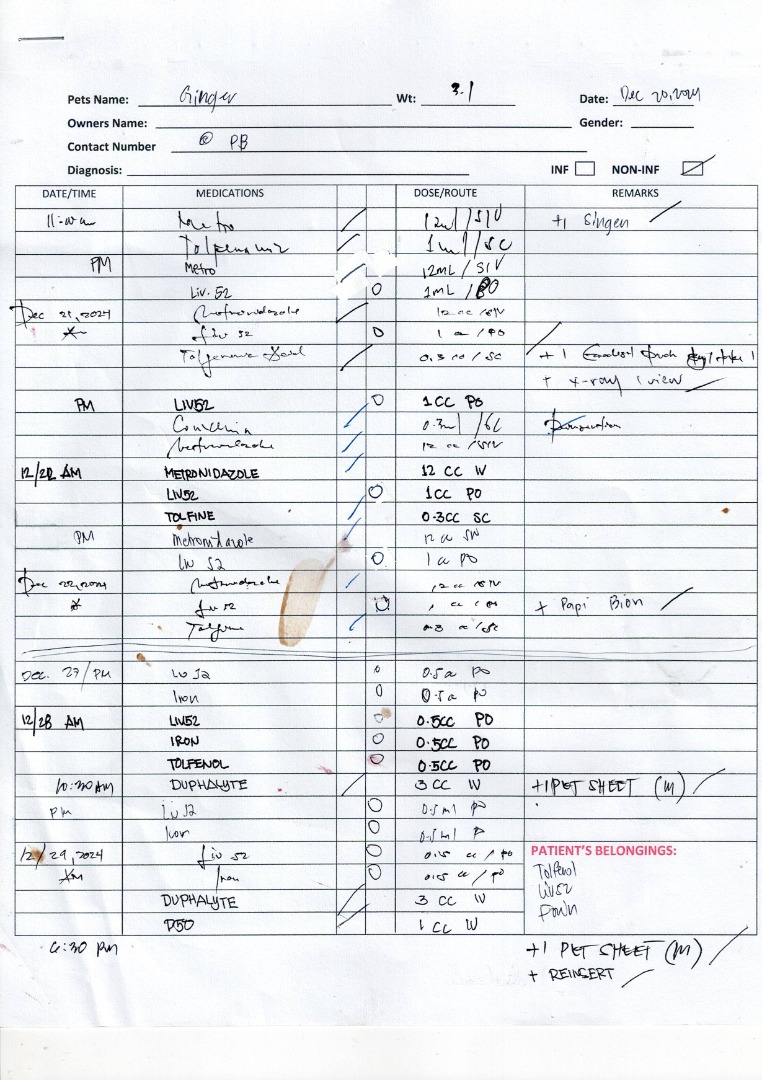 Pets Name: Ginger Wt: 3.1 Date: Dec 20, 2024
Owners Name: Gender:
Contact Number @ PB
Diagnosis: INF NON-INF
DATE/TIME MEDICATIONS DOSE/ROUTE REMARKS
Metro 12ml / SIV
1ml / SC
PM Metro 12mL / SIV
Liv. 52 1mL / PO
Dec 21, 2024 Metronidazole 12 cc / SIV
Liv 52 1 cc / PO
0.3 cc / SC + 1
+ x-ray 1 view
PM LIV52 1CC PO
0.3ml / SC
Metronidazole 12 cc / SIV
12/22 AM METRONIDAZOLE 12 CC IV
LIV52 1CC PO
TOLFINE 0.3CC SC
PM Metronidazole 12 cc
Liv 52 1 cc PO
Dec 22, 2024 Metronidazole 12 cc SIV
Liv 52 + Papi Bion
Tolfine 0.3 cc / SC
Dec. 27 / PM Liv 52 0.5 cc PO
Iron 0.5 cc PO
12/28 AM LIV52 0.5CC PO
IRON 0.5CC PO
TOLFENOL 0.5CC PO
10:30 AM DUPHALYTE 3 CC IV +1 PET SHEET (M)
PM Liv 52 0.5ml PO
Iron 0.5ml P
12/29, 2024 Liv 52 cc / PO
AM Iron cc / PO
PATIENT'S BELONGINGS:
Tolfenol
LIV52
DUPHALYTE 3 CC IV
D50 1 CC IV
6:30 PM +1 PET SHEET (M)
+ REINSERT